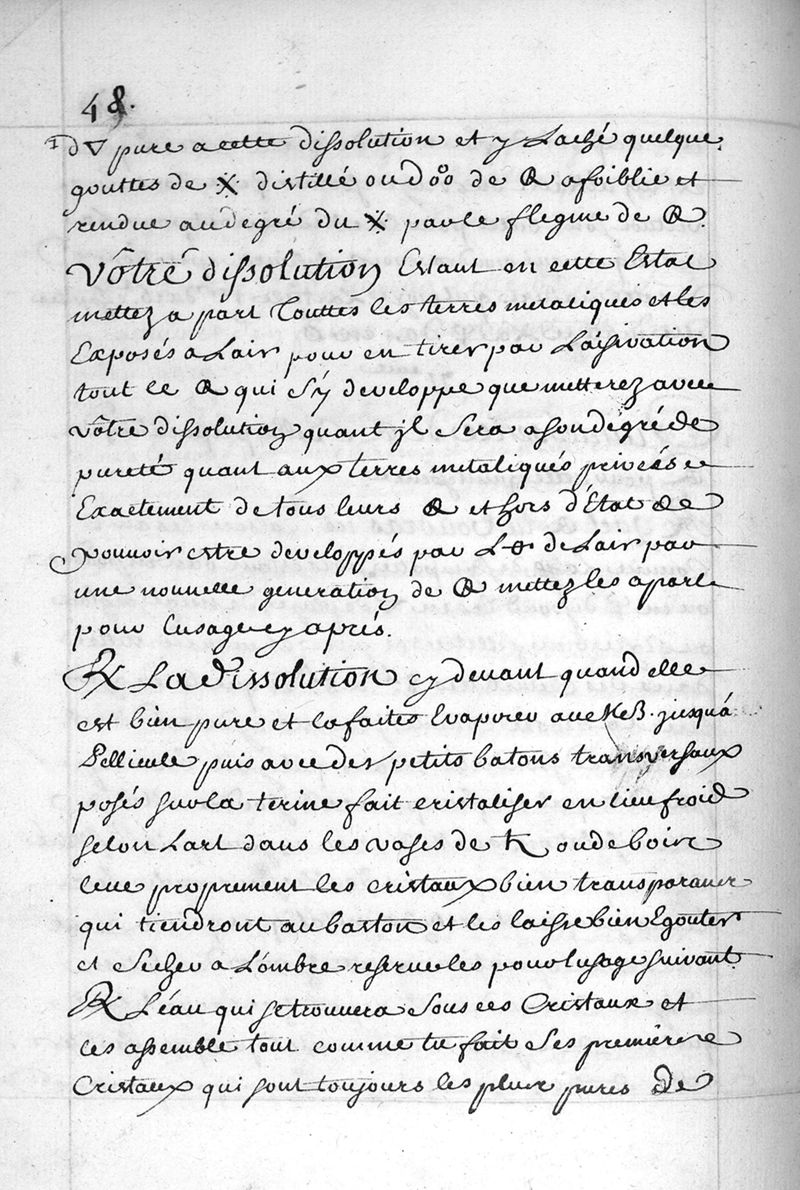 48.
d🜄 pure a cette dissolution et y Laché quelque
gouttes de distillé ou d de afoiblie et
rendue au degré du par le flegme de
Vôtre dissolution Estant en cette Estat
mettez a part Touttes les terres metaliques et les
Exposés a Lair pour en tirer par Laisivation
tout le qui s'y developpe que metterez avec
vôtre dissolution quant jl sera a son dégré de
pureté quant aux terres metaliqués privéés
Exactement de tous leurs et hors d'Etat de
pouvoir estre developpés par L de Lair par
une nouvelle generation de mettez les apart
pour Lusage cy aprés.
℞ La dissolution cy devant quand elle
est bien pure et la faites Evaporer au jusqu'á
Pellicule puis avec des petits batons transversaux
posés sur la terine fait cristaliser en lieu froid
selon Lart dans les vases de ou de bois
leve proprement les cristaux bien transparans
qui tiendront au baston et les laisse bien Egouter
et Secher a Lombre reserve les pour lusage suivant.
℞ L'éau qui se trouvera sous ces Cristaux et
les assemble tout comme tu fait Ses premiére
Cristaux qui sont toujours les plus pures De